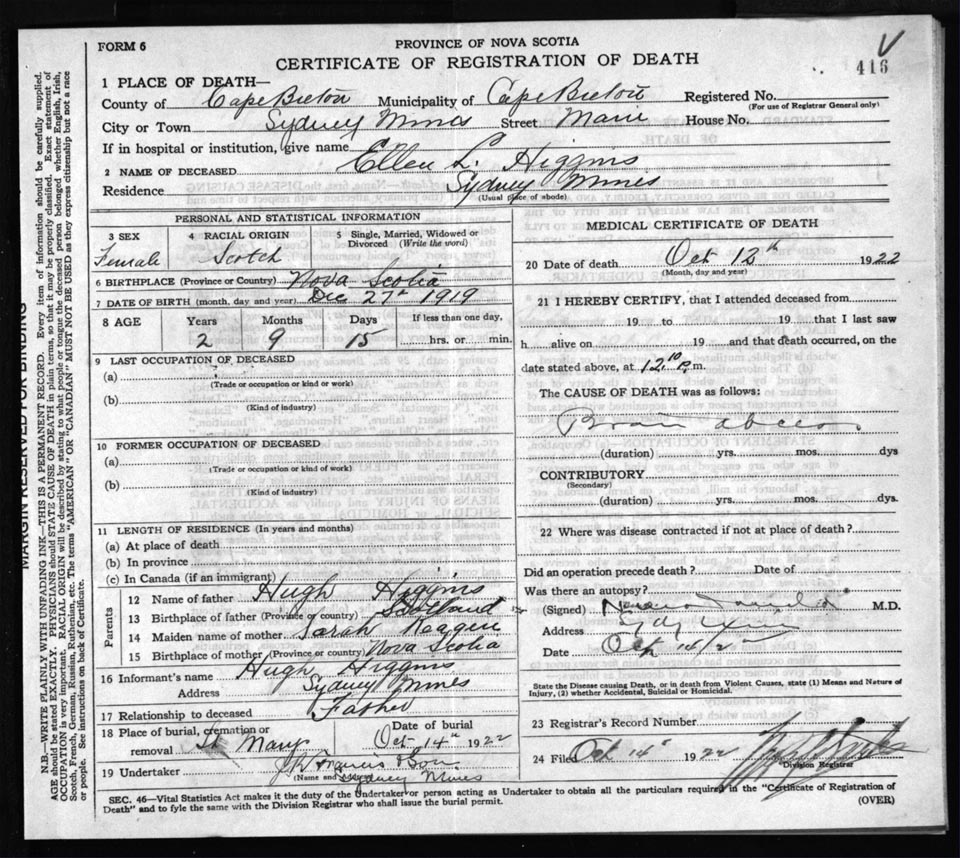 FORM 6
PROVINCE OF NOVA SCOTIA
CERTIFICATE OF REGISTRATION OF DEATH
416
1 PLACE OF DEATH—
County of Cape Breton Municipality of Cape Breton Registered No.
(For use of Registrar General only)
City or Town Sydney Mines Street Main House No.
If in hospital or institution, give name
2 NAME OF DECEASED Ellen L. Higgins
Residence Sydney Mines
(Usual place of abode)
PERSONAL AND STATISTICAL INFORMATION
3 SEX 4 RACIAL ORIGIN 5 Single, Married, Widowed or Divorced (Write the word)
Female Scotch
6 BIRTHPLACE (Province or Country) Nova Scotia
7 DATE OF BIRTH (month, day and year) Dec 27th 1919
8 AGE Years Months Days If less than one day,
2 9 15 hrs. or min.
9 LAST OCCUPATION OF DECEASED
(a)
(Trade or occupation or kind or work)
(b)
(Kind of industry)
10 FORMER OCCUPATION OF DECEASED
(a)
(Trade or occupation or kind or work)
(b)
(Kind of industry)
11 LENGTH OF RESIDENCE (In years and months)
(a) At place of death
(b) In province
(c) In Canada (if an immigrant)
Parents
12 Name of father Hugh Higgins
13 Birthplace of father (Province or country) Scotland
14 Maiden name of mother Sarah Reagen
15 Birthplace of mother (Province or country) Nova Scotia
16 Informant's name Hugh Higgins
Address Sydney Mines
17 Relationship to deceased Father
18 Place of burial, cremation or removal Date of burial
St Marys Oct 14th 1922
19 Undertaker & Son
(Name and Sydney Mines
MEDICAL CERTIFICATE OF DEATH
20 Date of death Oct 12th 1922
(Month, day and year)
21 I HEREBY CERTIFY, that I attended deceased from
19 to 19 that I last saw
h alive on 19 and that death occurred, on the
date stated above, at 12.10 P.m.
The CAUSE OF DEATH was as follows:
Brain abcess
(duration) yrs. mos. dys
CONTRIBUTORY
(Secondary)
(duration) yrs. mos. dys.
22 Where was disease contracted if not at place of death?
Did an operation precede death? Date of
Was there an autopsy?
(Signed) M.D.
Address
Date Oct 14/2
State the Disease causing Death, or in death from Violent Causes, state (1) Means and Nature of
Injury, (2) whether Accidental, Suicidal or Homicidal.
23 Registrar's Record Number
24 Filed Oct 14th 1922
Division Registrar
SEC. 46—Vital Statistics Act makes it the duty of the Undertaker or person acting as Undertaker to obtain all the particulars required in the "Certificate of Registration of
Death" and to fyle the same with the Division Registrar who shall issue the burial permit. (OVER)
MARGIN RESERVED FOR BINDING
N.B.—WRITE PLAINLY WITH UNFADING INK—THIS IS A PERMANENT RECORD. Every item of information should be carefully supplied.
AGE should be stated EXACTLY. PHYSICIANS should STATE CAUSE OF DEATH in plain terms, so that it may be properly classified. Exact statement of
OCCUPATION is very important. RACIAL ORIGIN will be described by stating to what people or tongue the deceased person belonged, whether English, Irish,
Scotch, French, German, Russian, Ruthenian, etc. The terms "AMERICAN" OR "CANADIAN" MUST NOT BE USED as they express citizenship but not a race
or people. See instructions on back of Certificate.